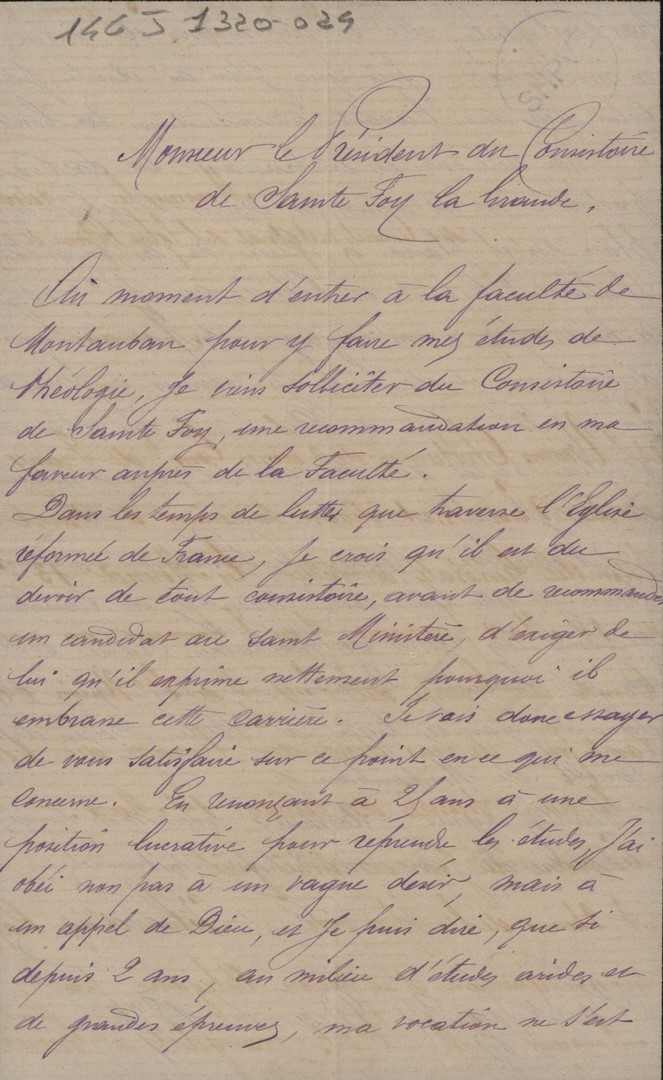 146 J 1320-029
SHPF
Monsieur le Président du Consistoire
de Sainte Foy la Grande,
Au moment d'entrer à la faculté de
Montauban pour y faire mes études de
théologie, je viens solliciter du Consistoire
de Sainte Foy, une recommandation en ma
faveur auprès de la Faculté.
Dans les temps de luttes que traverse l'Eglise
réformée de France, je crois qu'il est du
devoir de tout consistoire, avant de recommander
un candidat au saint Ministère, d'exiger de
lui qu'il exprime nettement pourquoi il
embrasse cette carrière. Je vais donc essayer
de vous satisfaire sur ce point en ce qui me
concerne. En renonçant à 25 ans à une
position lucrative pour reprendre les études, j'ai
obéi non pas à un vague désir, mais à
un appel de Dieu, et je puis dire, que si
depuis 2 ans, au milieu d'études arides et
de grandes épreuves, ma vocation ne s'est